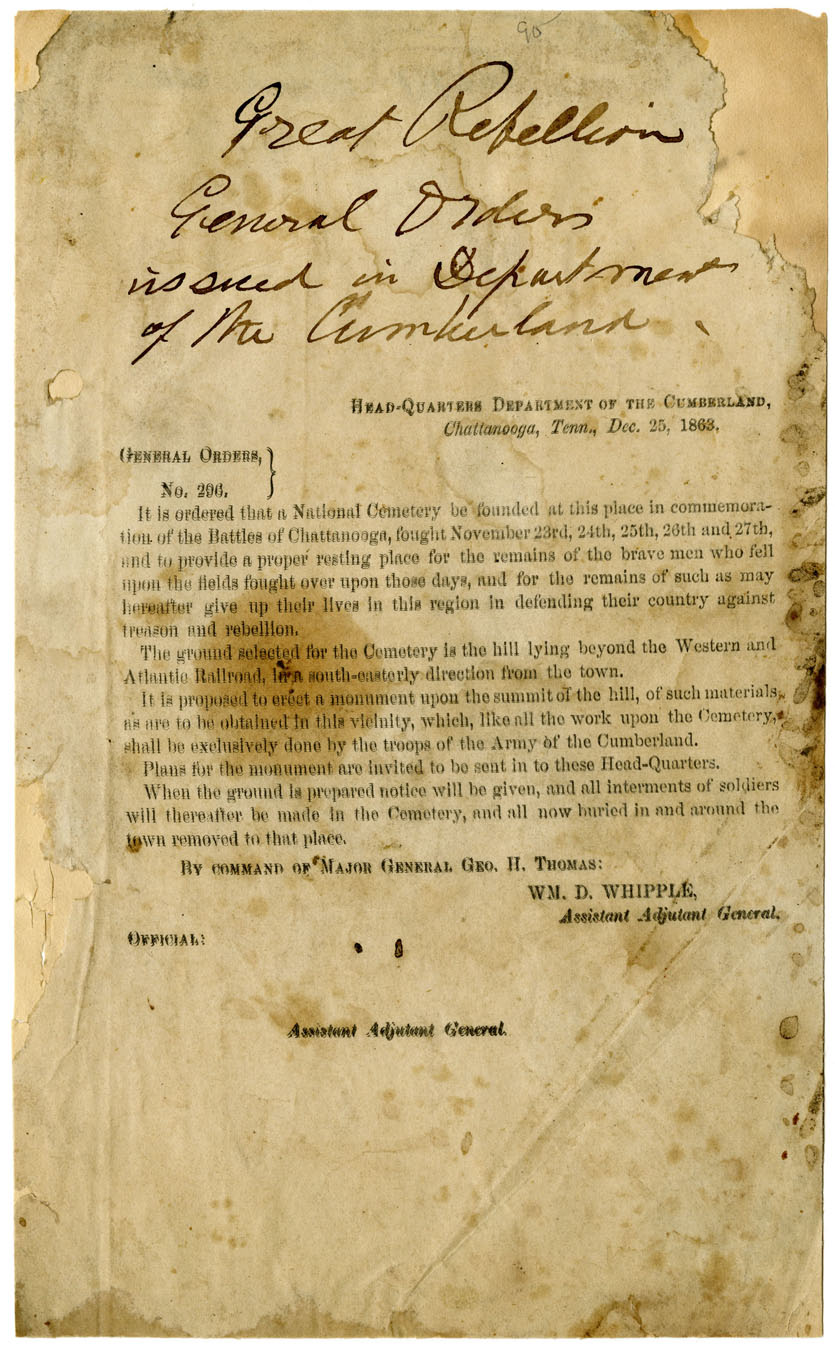 90
Great Rebellion
General Orders
issued in Department
of the Cumberland.
Head-Quarters Department of the Cumberland,
Chattanooga, Tenn., Dec. 25, 1863.
General Orders, }
No. 296. }
It is ordered that a National Cemetery be founded at this place in commemora-
tion of the Battles of Chattanooga, fought November 23rd, 24th, 25th, 26th and 27th,
and to provide a proper resting place for the remains of the brave men who fell
upon the fields fought over upon those days, and for the remains of such as may
hereafter give up their lives in this region in defending their country against
treason and rebellion.
The ground selected for the Cemetery is the hill lying beyond the Western and
Atlantic Railroad, in a south-easterly direction from the town.
It is proposed to erect a monument upon the summit of the hill, of such materials,
as are to be obtained in this vicinity, which, like all the work upon the Cemetery,
shall be exclusively done by the troops of the Army of the Cumberland.
Plans for the monument are invited to be sent in to these Head-Quarters.
When the ground is prepared notice will be given, and all interments of soldiers
will thereafter be made in the Cemetery, and all now buried in and around the
town removed to that place.
By command of Major General Geo. H. Thomas:
WM. D. WHIPPLE,
Assistant Adjutant General.
Official:
Assistant Adjutant General.